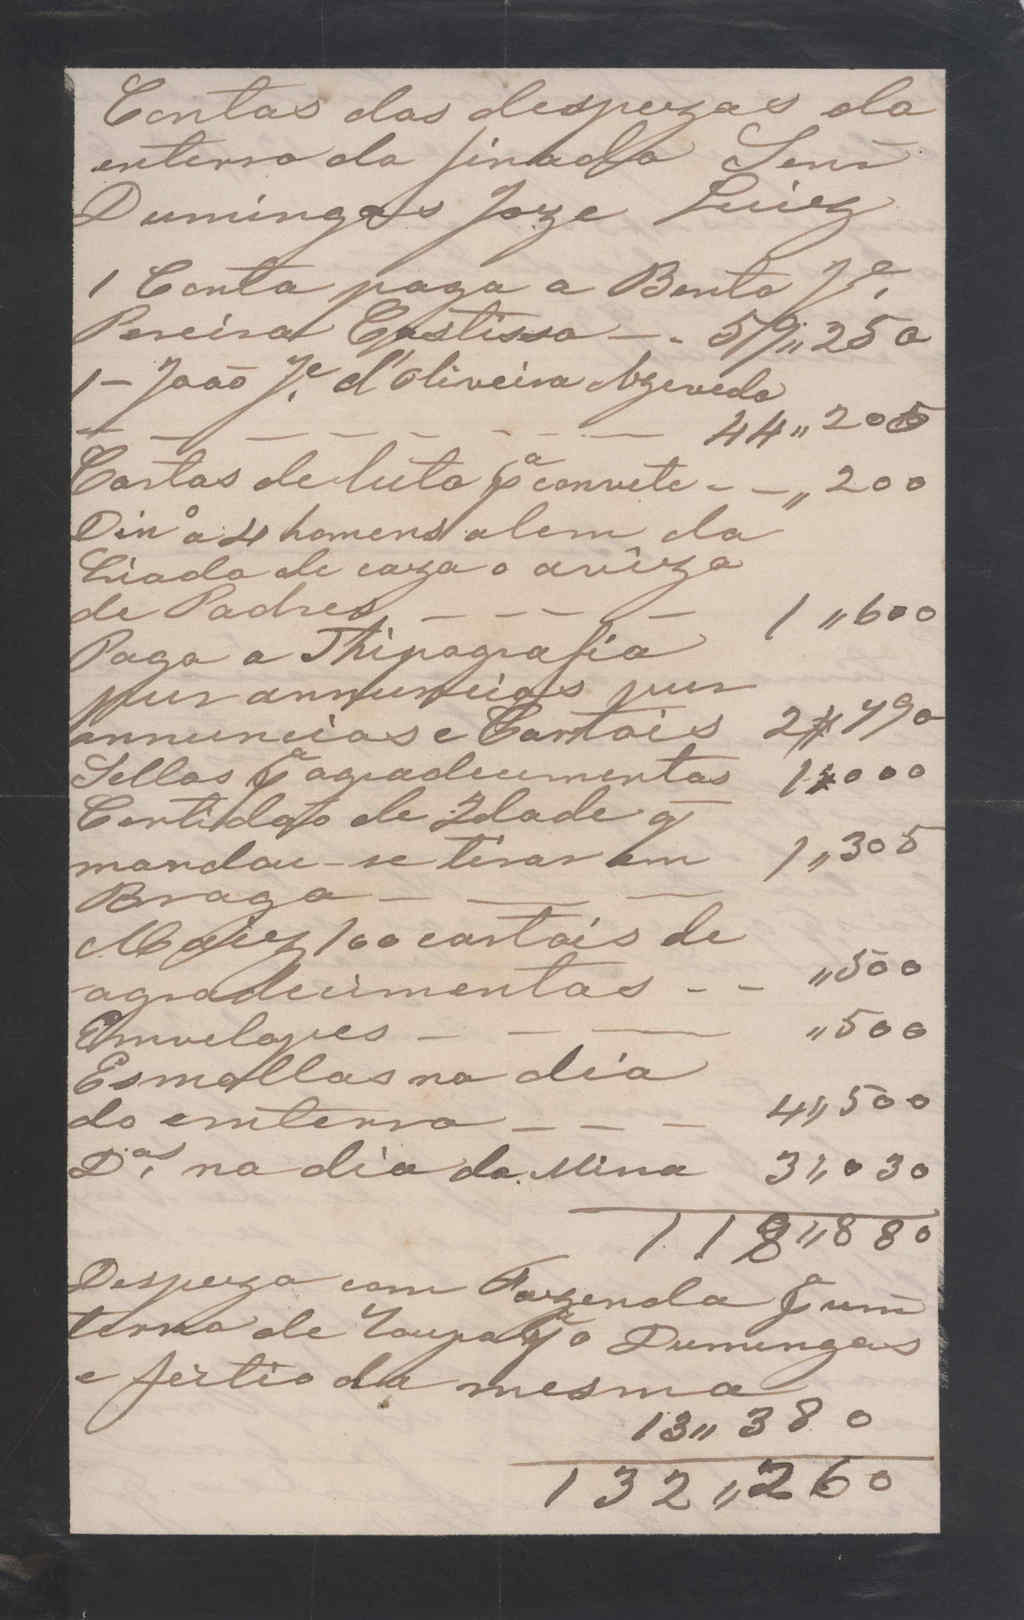 Contas das despezas do
enterro do finado Senr
Dumingos Joze Luiz
1 Conta paga a Bento Je.
Pereira Gostisso - - 59,,250
1 - João Je. d'Oliveira Azevedo
- - - - - - - - 44,,205
Cartas de luto pa convite - - ,,200
Dinro a 4 homens alem do
Criado de caza o avizo
de Padres - - - - 1,,600
Pago a Thipografia
pur annuncios pur
annuncios e Cartois 2,,790
Sellos pa agradecimentos 1,,000
Certidão de Idade q
mandou-se tirar em 1,,305
Braga - - -
Mais 100 cartois de
agradecimentos - - ,,500
Emvelopes - - - ,,500
Esmollas no dia
do emterro - - - 4,,500
Das. no dia da Missa 3,,030
118,,880
Despeza com Fazenda pa um
terno de roupa pa o Dumingos
e feitio do mesmo
13,,380
132,,260